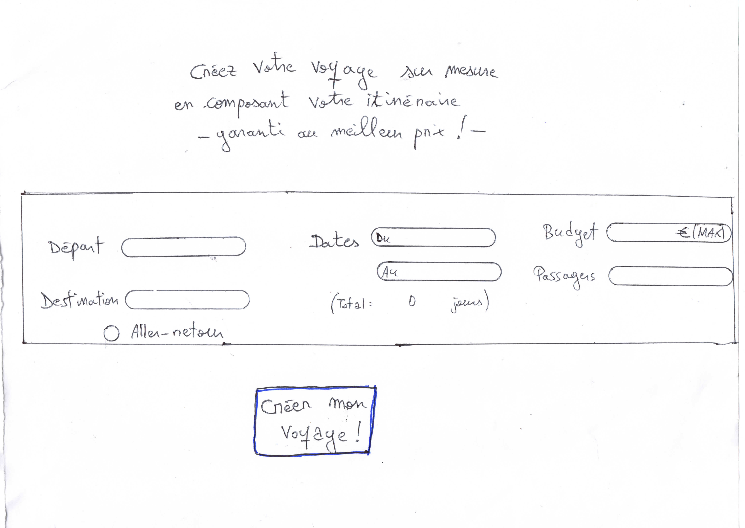 Créez votre voyage sur mesure
en composant votre itinéraire
- garanti au meilleur prix ! -
Départ
Destination
Aller-retour
Dates Du
Au
(Total: 0 jours)
Budget € (MAX)
Passagers
Créer mon
voyage !